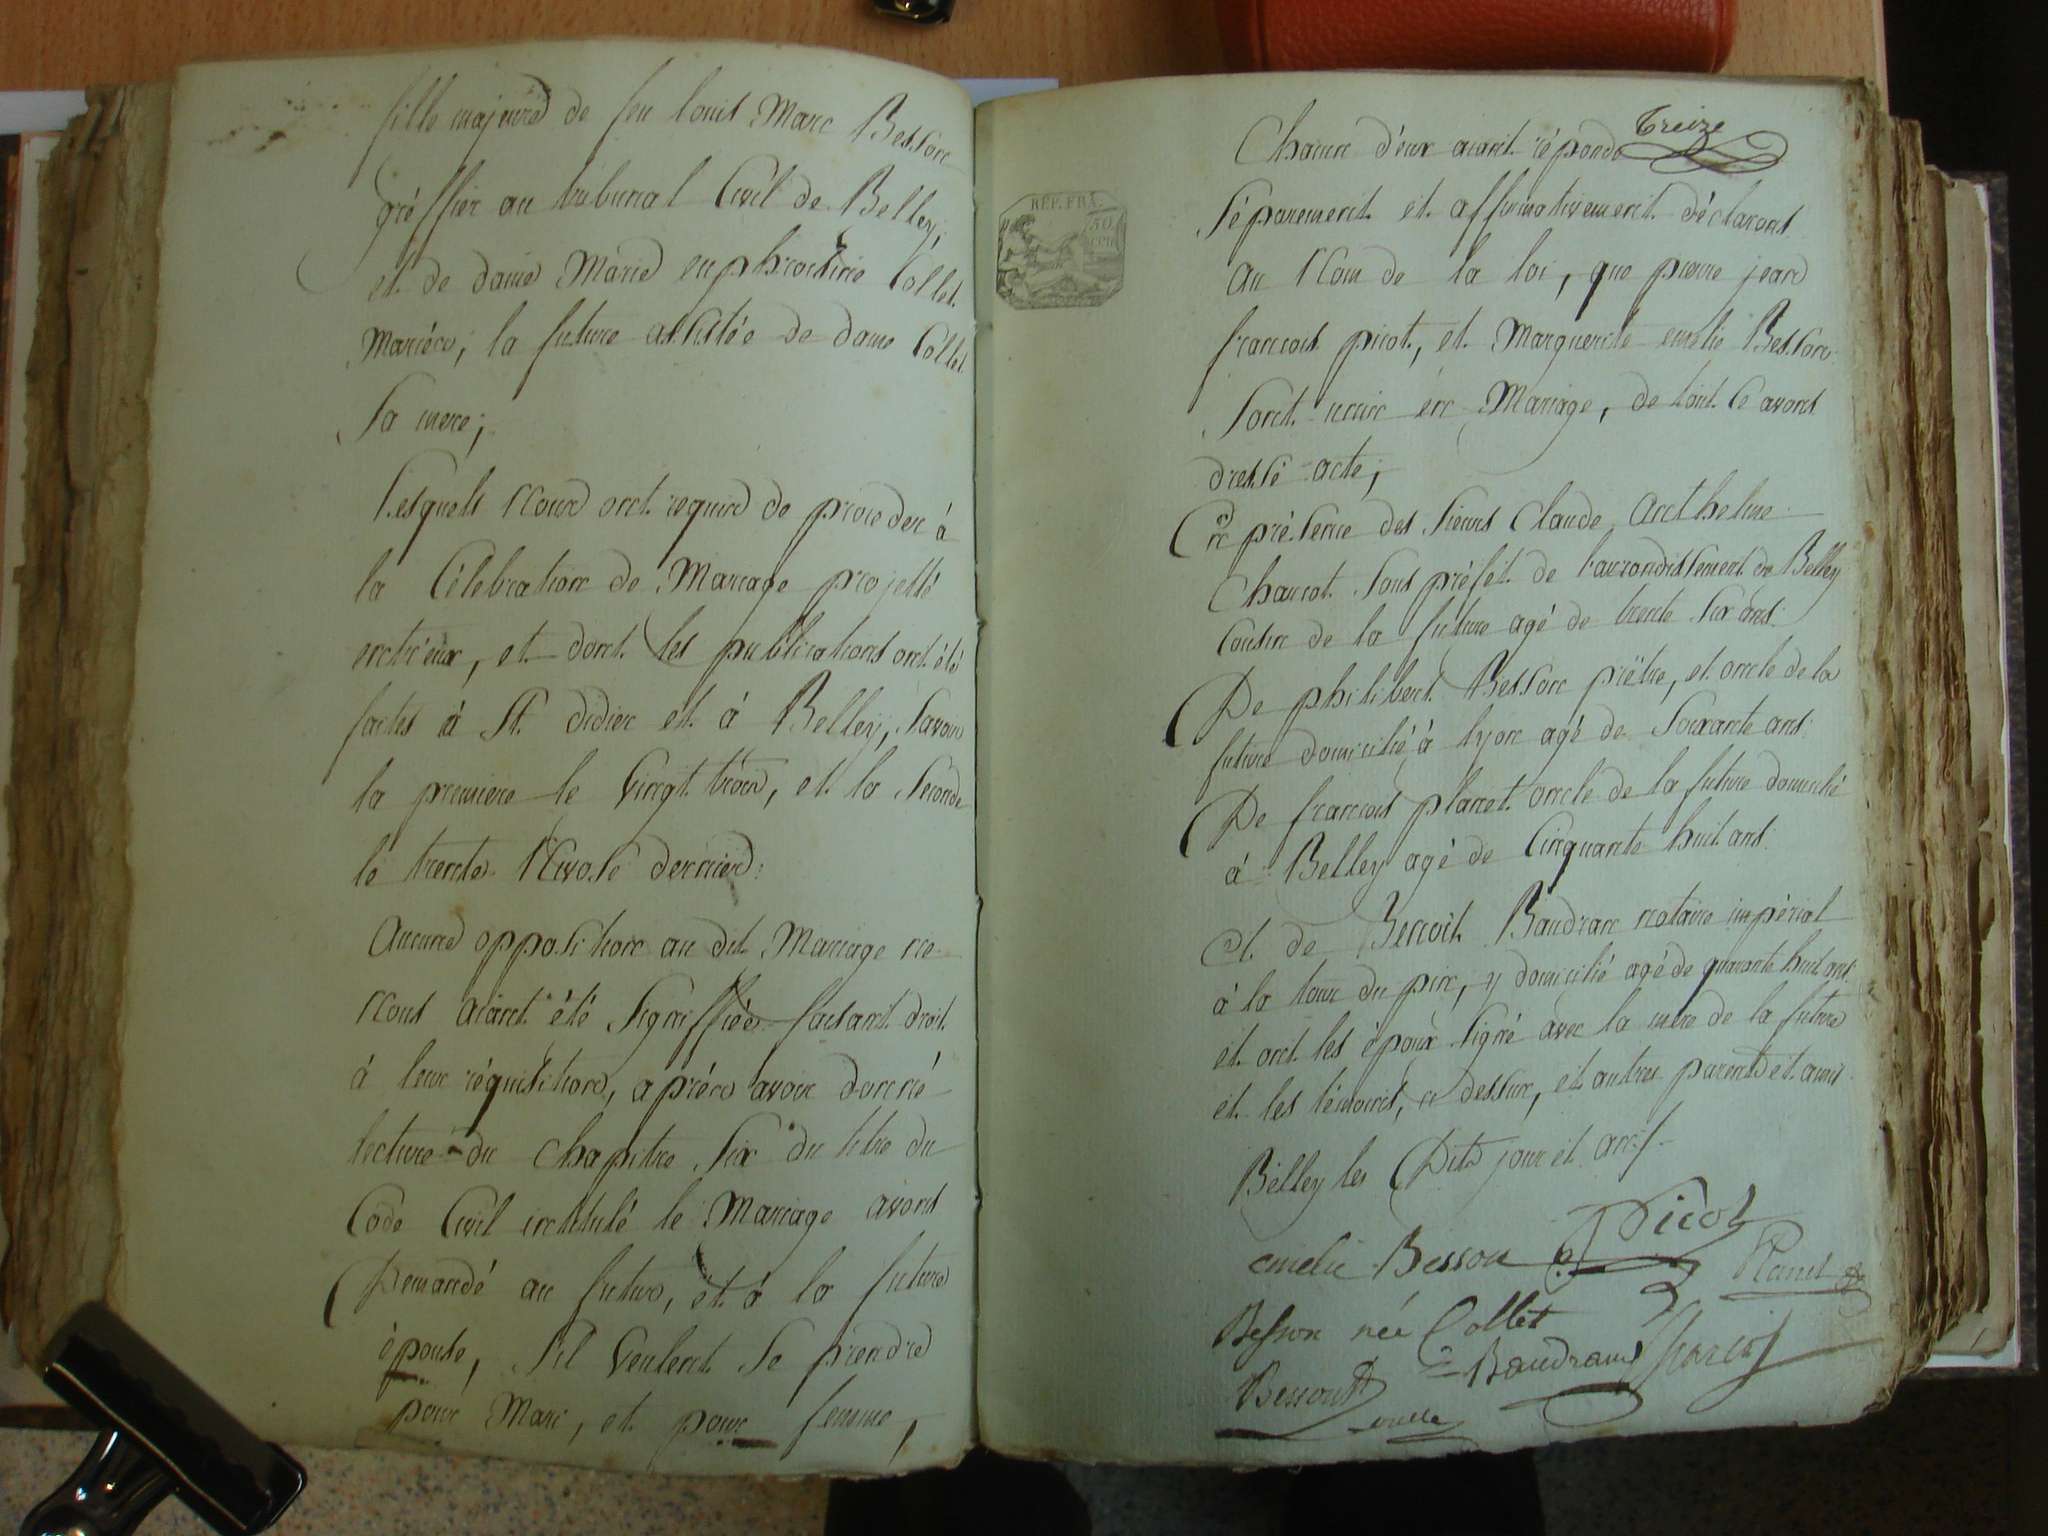 fille majeure de feu louis Marc Besson
gréffier au tribunal Civil de Belley,
et de dame Marie euphrosine Collet
Mariés; la future assistée de dame Collet
Sa mere;
Lesquels Nous ont requis de proceder à
la Célébration de Mariage projetté
entr'eux, et dont les publications ont été
faites à St. didier et à Belley, Savoir
la premiere le Vingt trois, et la Seconde
le trente Nivose dernier:
Aucune opposition au dit Mariage ne
Nous aiant été Signiffiée faisant droit
à leur réquisition, après avoir donné
lecture du Chapitre Six du titre du
Code Civil intitulé le Mariage avons
Demandé au futur, et à la future
épouse, S'il veulent Se prendre
pour Mari, et pour femme,
treize
Chacun d'eux aiant répondu
Séparement et affirmativement déclarons
au Nom de la loi, que pierre jean
francois picot, et Marguerite emelie Besson
Sont unir en Mariage, de tout ce avons
dressé acte;
REP. FRA.
50
CEN
En présence des Sieurs Claude Anthelme
Charcot Sous préfet de l'arrondissement de Belley
Cousin de la future agé de trente Six ans:
De philibert Besson prëtre, et oncle de la
future domicilié à lyon agé de Soixante ans:
De francois planet oncle de la future domicilié
à Belley agé de Cinquante huit ans:
et de Benoit Baudran notaire impérial
à la tour du pin, y domicilié agé de quarante huit ans
et ont les époux Signé avec la mere de la future
et les témoins, ci dessus, et autres parents et amis
Belley les Dits jour et an:/.
emelie Besson Picot
Planet
Besson née Collet
Baudrand Charcot
Besson
oncle